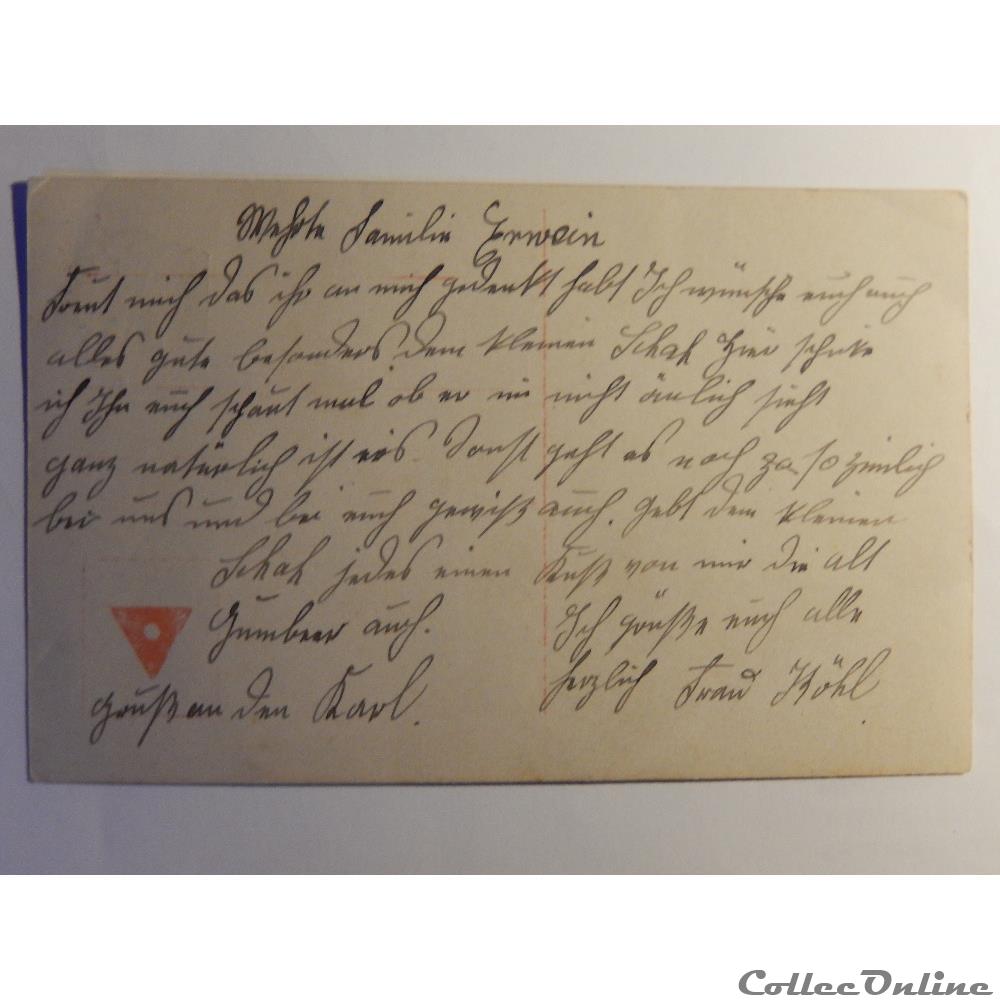 Wehrte Familie Erwein
Freut mich das ihr an mich gedenkt habt Ich wünsche euch auch
alles gute besonders dem kleinen Schatz Hier schike
ich Ihn euch schaut mal ob er im nicht änlich sieht
ganz natürlich ist eris. Sonst geht es noch so zimlich
bei uns und bei euch gewiß auch. Gebt dem kleinen
Schatz jedes einen Kuß von mir die alt
auch. Ich grüße euch alle
gruß an den Karl. herzlich Frau Köhl
CollecOnline